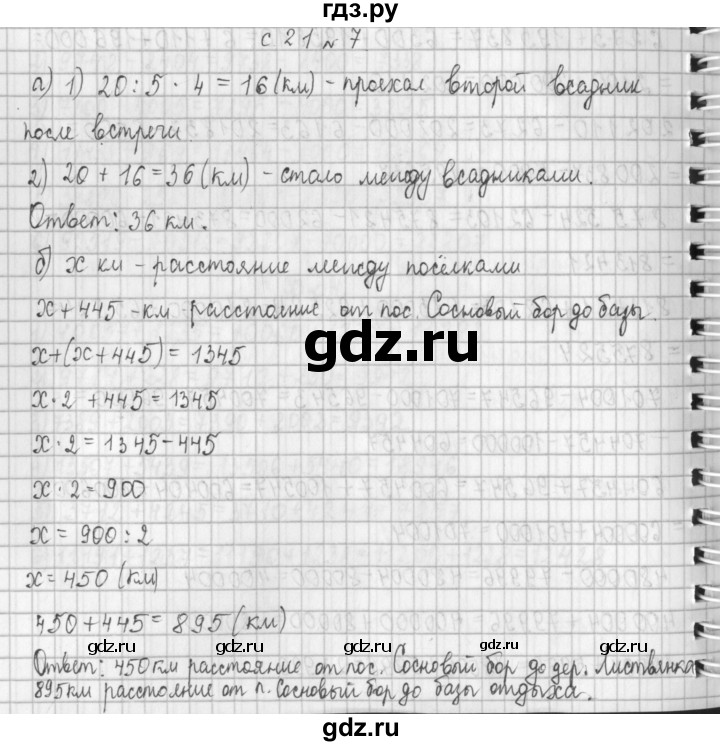 гдз.ру
с 21 № 7
а) 1) 20 : 5 · 4 = 16 (км) - проехал второй всадник
после встречи.
2) 20 + 16 = 36 (км) - стало между всадниками.
Ответ: 36 км.
б) х км - расстояние между посёлками
х + 445 - км расстояние от пос. Сосновый бор до базы.
х+(х+445) = 1345
х · 2 + 445 = 1345
х · 2 = 1345 - 445
х · 2 = 900
х = 900 : 2
х = 450 (км)
450 + 445 = 895 (км)
Ответ: 450 км расстояние от пос. Сосновый бор до дер. Листвянка
895 км расстояние от п. Сосновый бор до базы отдыха.
gdz.ru
gdz.ru
gdz.ru
gdz.ru
gdz.ru
gdz.ru